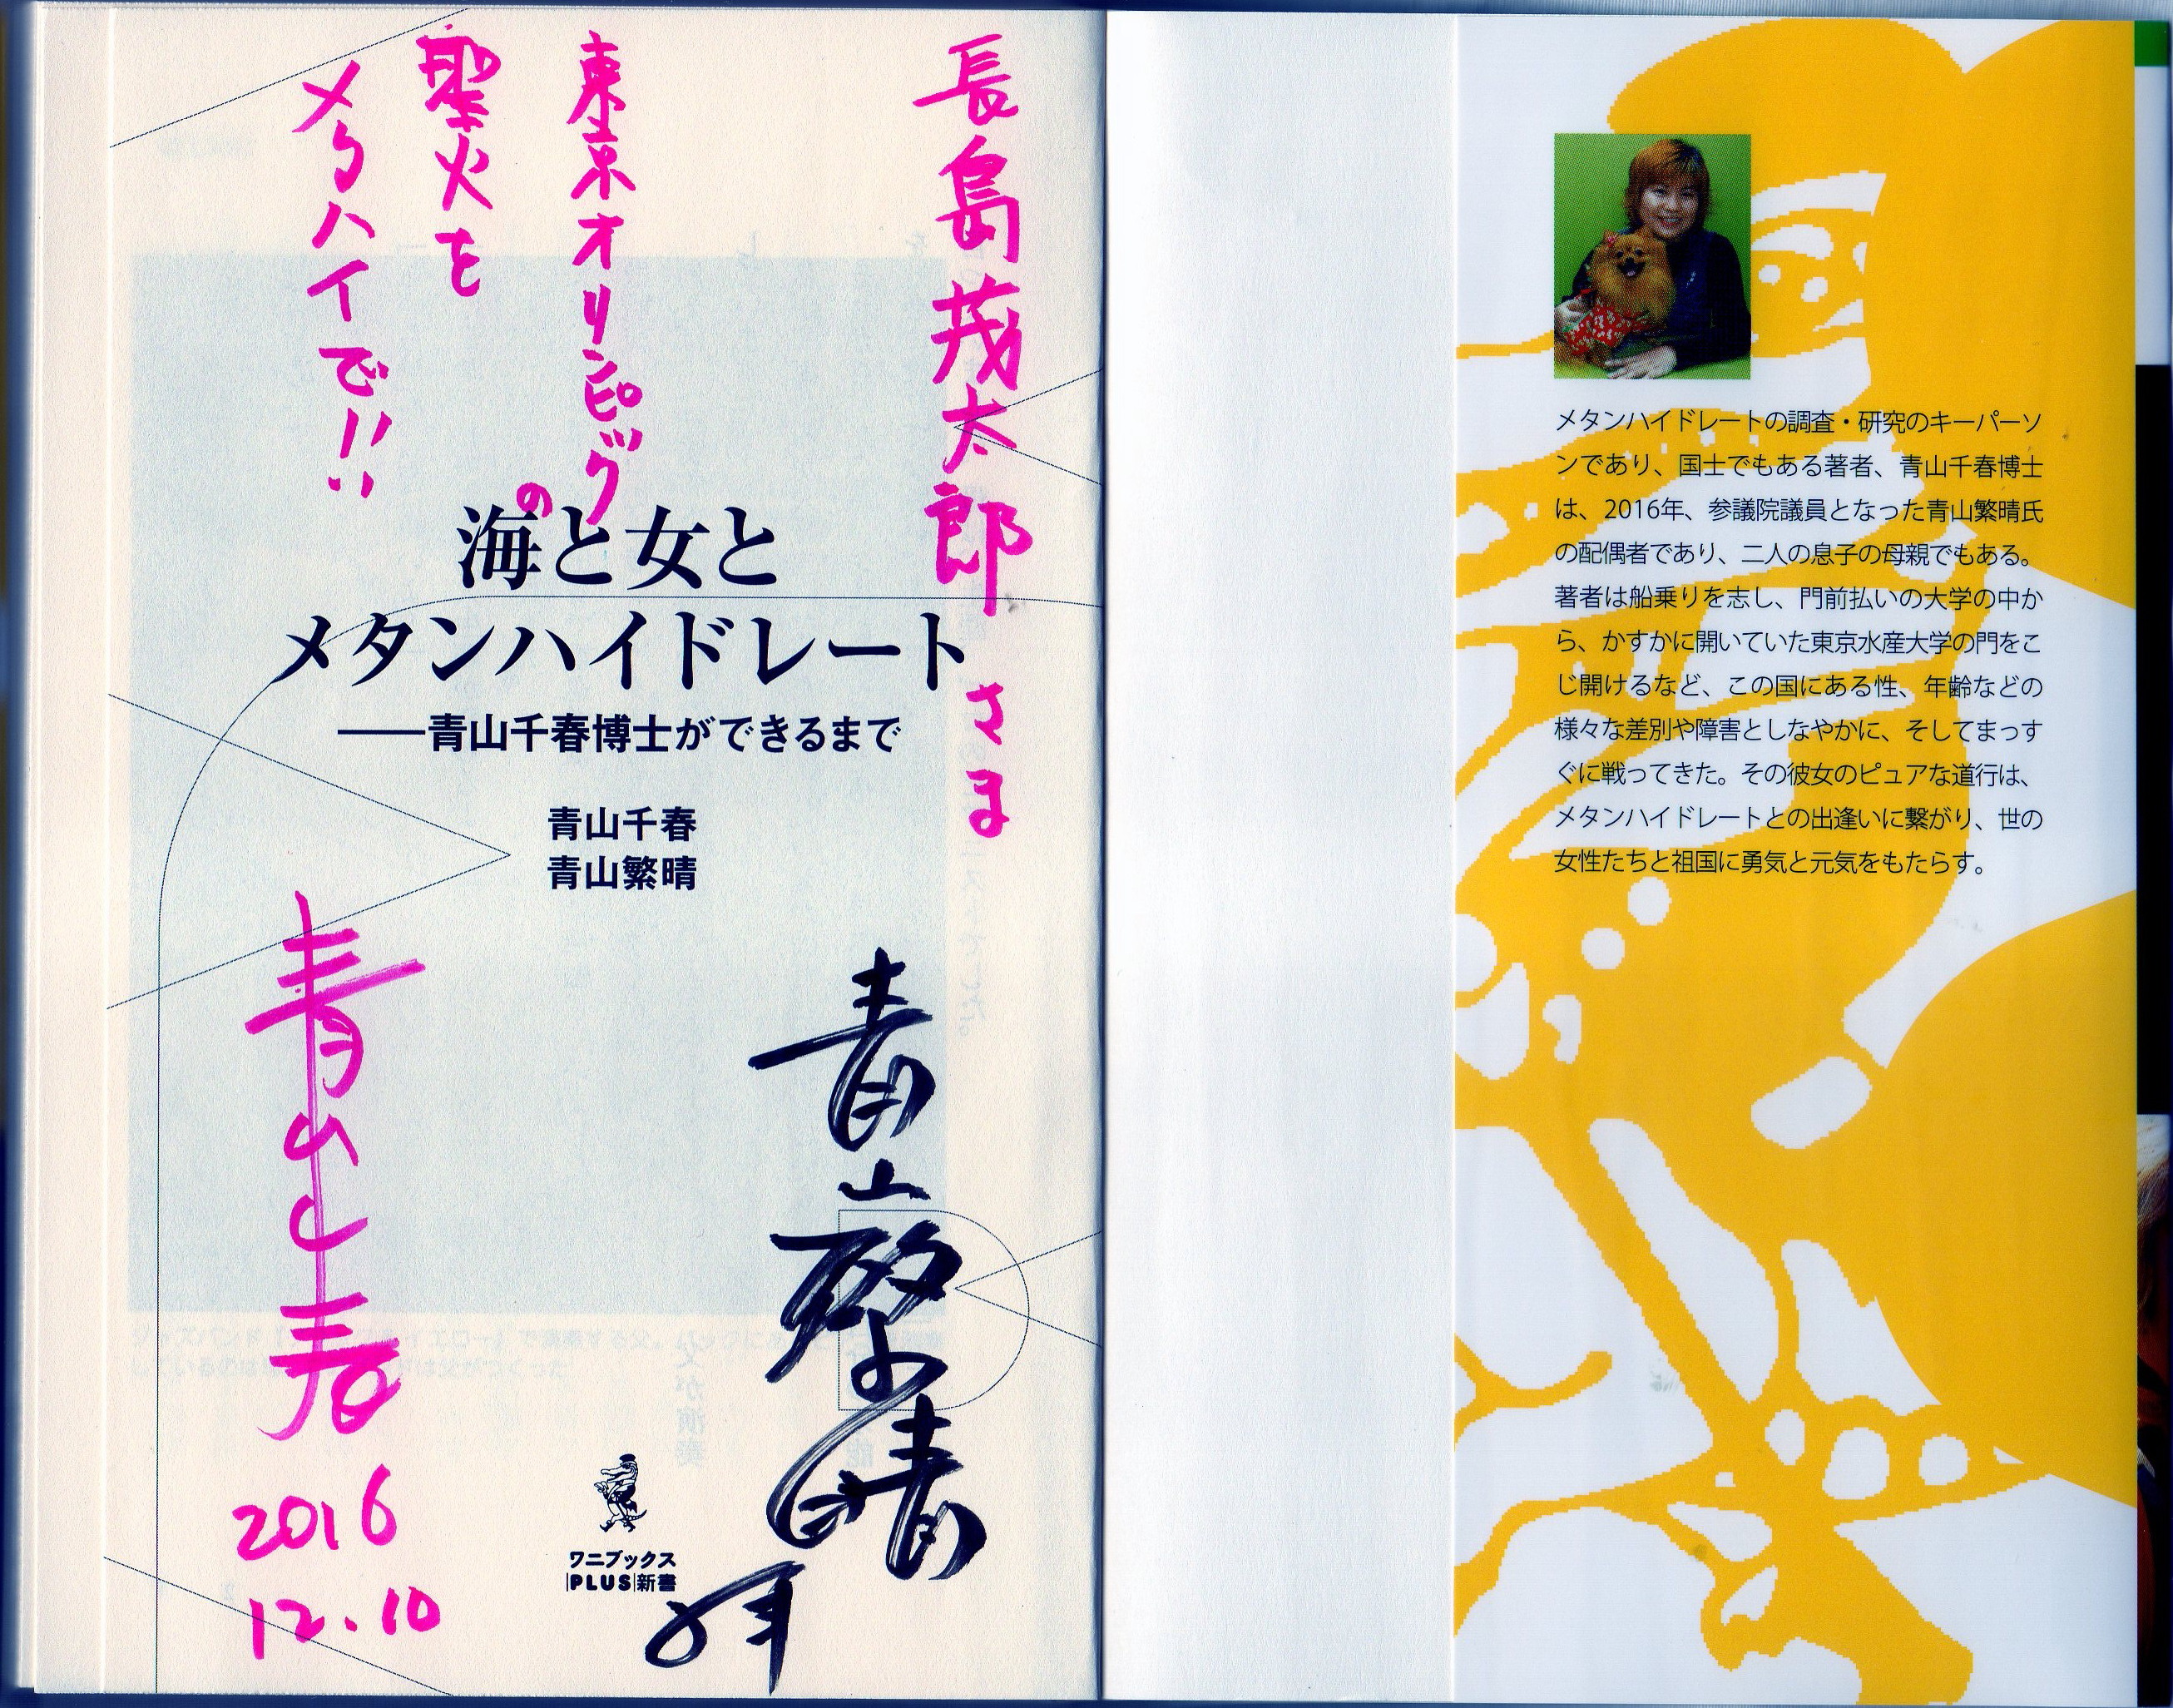 長島茂太郎さま
東京オリンピックの
聖火を
メタハイで!!
海と女と
メタンハイドレート
——青山千春博士ができるまで
青山千春
青山繁晴
青山千春
2016
12.10
青山繁晴
拝
ワニブックス
PLUS 新書
メタンハイドレートの調査・研究のキーパーソ
ンであり、国士でもある著者、青山千春博士
は、2016年、参議院議員となった青山繁晴氏
の配偶者であり、二人の息子の母親でもある。
著者は船乗りを志し、門前払いの大学の中か
ら、かすかに開いていた東京水産大学の門をこ
じ開けるなど、この国にある性、年齢などの
様々な差別や障害としなやかに、そしてまっす
ぐに戦ってきた。その彼女のピュアな道行は、
メタンハイドレートとの出逢いに繋がり、世の
女性たちと祖国に勇気と元気をもたらす。